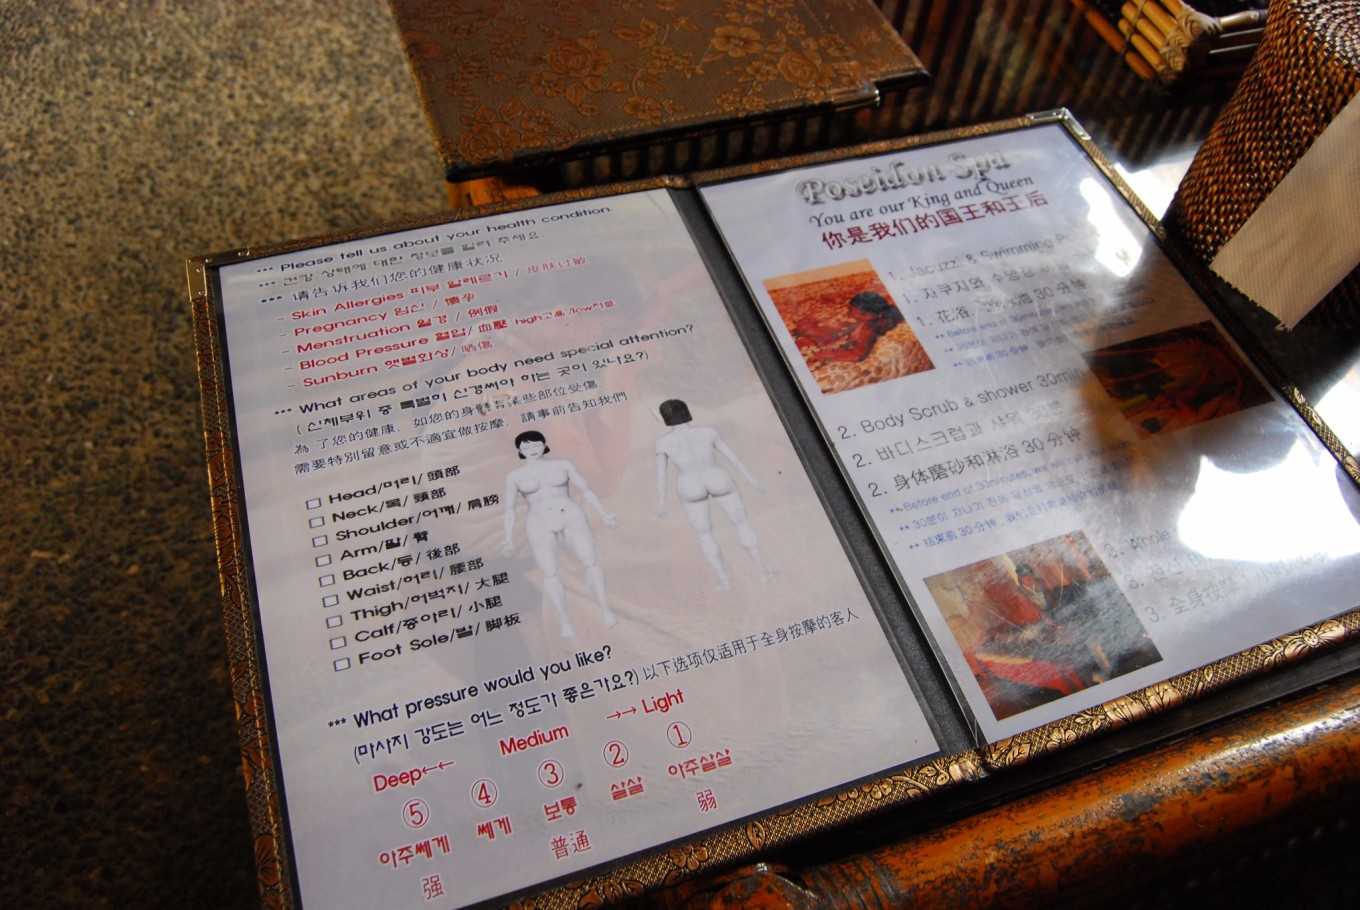 *** Please tell us about your health condition.
*** 건강 상태에 대한 정보를 알려 주세요.
*** 请告诉我们您的健康状况
- Skin Allergies 피부 알레르기 / 皮肤过敏
- Pregnancy 임신 / 懷孕
- Menstruation 월경 / 例假
- Blood Pressure 혈압/ 血壓 high고혈 /low저혈
- Sunburn 햇빛화상/ 晒傷
*** What areas of your body need special attention?
( 신체부위 중 특별히 신경써야 하는 곳이 있나요?)
為了您的健康, 如您的身體有某些部位受傷
需要特別留意或不適宜做按摩, 請事前告知我們
Head/머리/ 頭部
Neck/목/ 頸部
Shoulder/어깨/ 肩膀
Arm/팔/ 臂
Back/등/ 後部
Waist/허리/ 腰部
Thigh/허벅지/ 大腿
Calf/종아리/ 小腿
Foot Sole/발/ 脚板
*** What pressure would you like?
(마사지 강도는 어느 정도가 좋은가요?) 以下选项仅适用于全身按摩的客人
Deep←← Medium →→ Light
⑤ ④ ③ ② ①
아주쎄게 쎄게 보통 살살 아주살살
强 普通 弱
Poseidon Spa
You are our King and Queen
你是我们的国王和王后
1. Jacuzzi & Swimming
1. 자쿠지와 수영
1. 花浴, 30 分钟
** Before end of
2. Body Scrub & shower 30min
2. 바디스크럽과 샤워
2. 身体磨砂和淋浴 30 分钟
** Before end of 30minutes, we will
** 30분이 지나기 전에
** 结束前 30 分钟,
3. Whole
3. 전신
3. 全身按摩